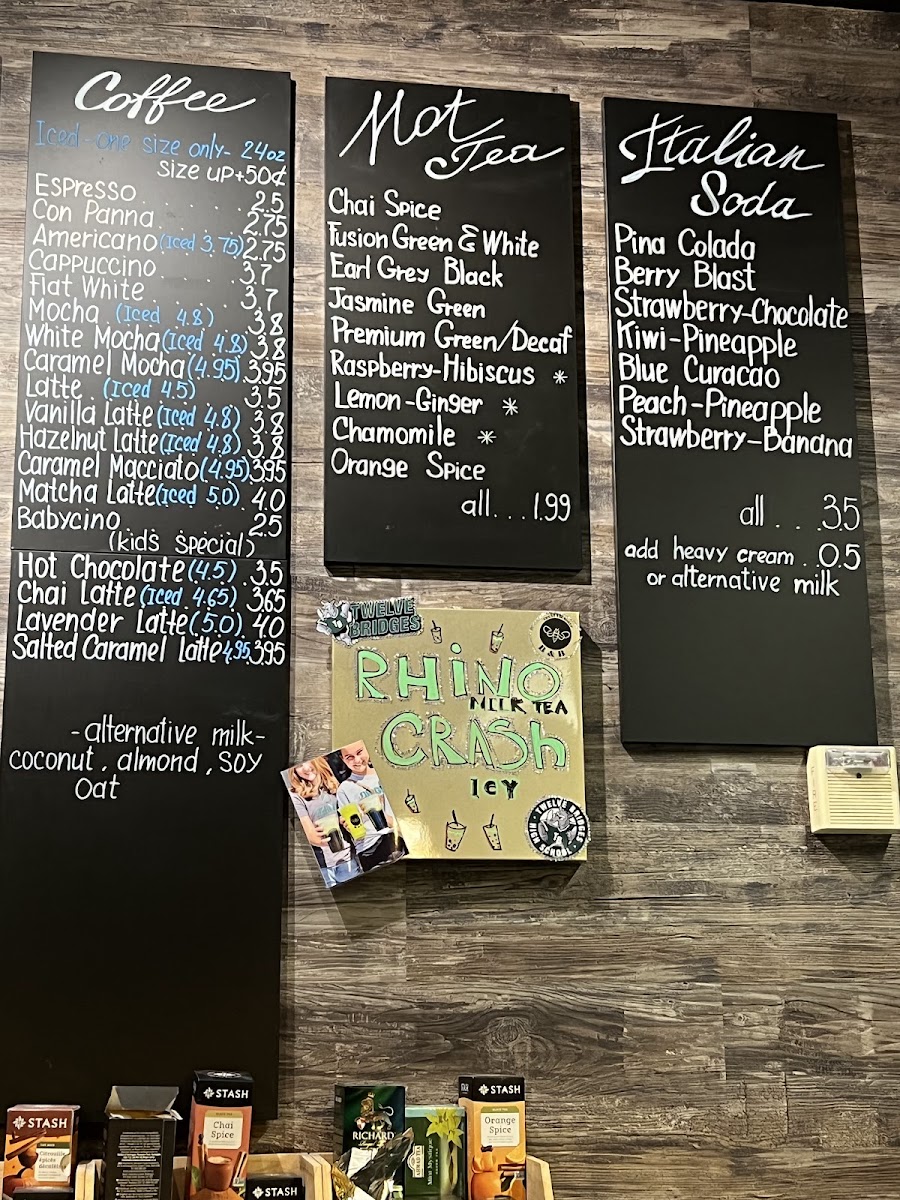 Coffee
Iced-one size only- 24oz
Size up+50¢
Espresso . . . . . 2.5
Con Panna . . . . 2.75
Americano (Iced 3.75) 2.75
Cappuccino . . . . 3.7
Flat White . . . . 3.7
Mocha (Iced 4.8) 3.8
White Mocha (Iced 4.8) 3.8
Caramel Mocha (4.95) 3.95
Latte . (Iced 4.5) 3.5
Vanilla Latte (Iced 4.8) 3.8
Hazelnut Latte (Iced 4.8) 3.8
Caramel Macciato (4.95) 3.95
Matcha Latte (Iced 5.0) 4.0
Babycino . . . . . 2.5
(kids special)
Hot Chocolate (4.5) . 3.5
Chai Latte (Iced 4.65) 3.65
Lavender Latte (5.0) 4.0
Salted Caramel latte 4.95 3.95
-alternative milk-
coconut, almond, soy
Oat
Hot
Tea
Chai Spice
Fusion Green & White
Earl Grey Black
Jasmine Green
Premium Green/Decaf
Raspberry-Hibiscus *
Lemon-Ginger *
Chamomile *
Orange Spice
all...1.99
Italian
Soda
Pina Colada
Berry Blast
Strawberry-Chocolate
Kiwi-Pineapple
Blue Curacao
Peach-Pineapple
Strawberry-Banana
all . . . 3.5
add heavy cream . 0.5
or alternative milk
TWELVE
BRIDGES
B & B
RHINO
MILK TEA
CRASh
ICY
TWELVE BRIDGES
HIGH SCHOOL
STASH
STASH
Chai
Spice
STASH
RICHARD
STASH
Orange
Spice